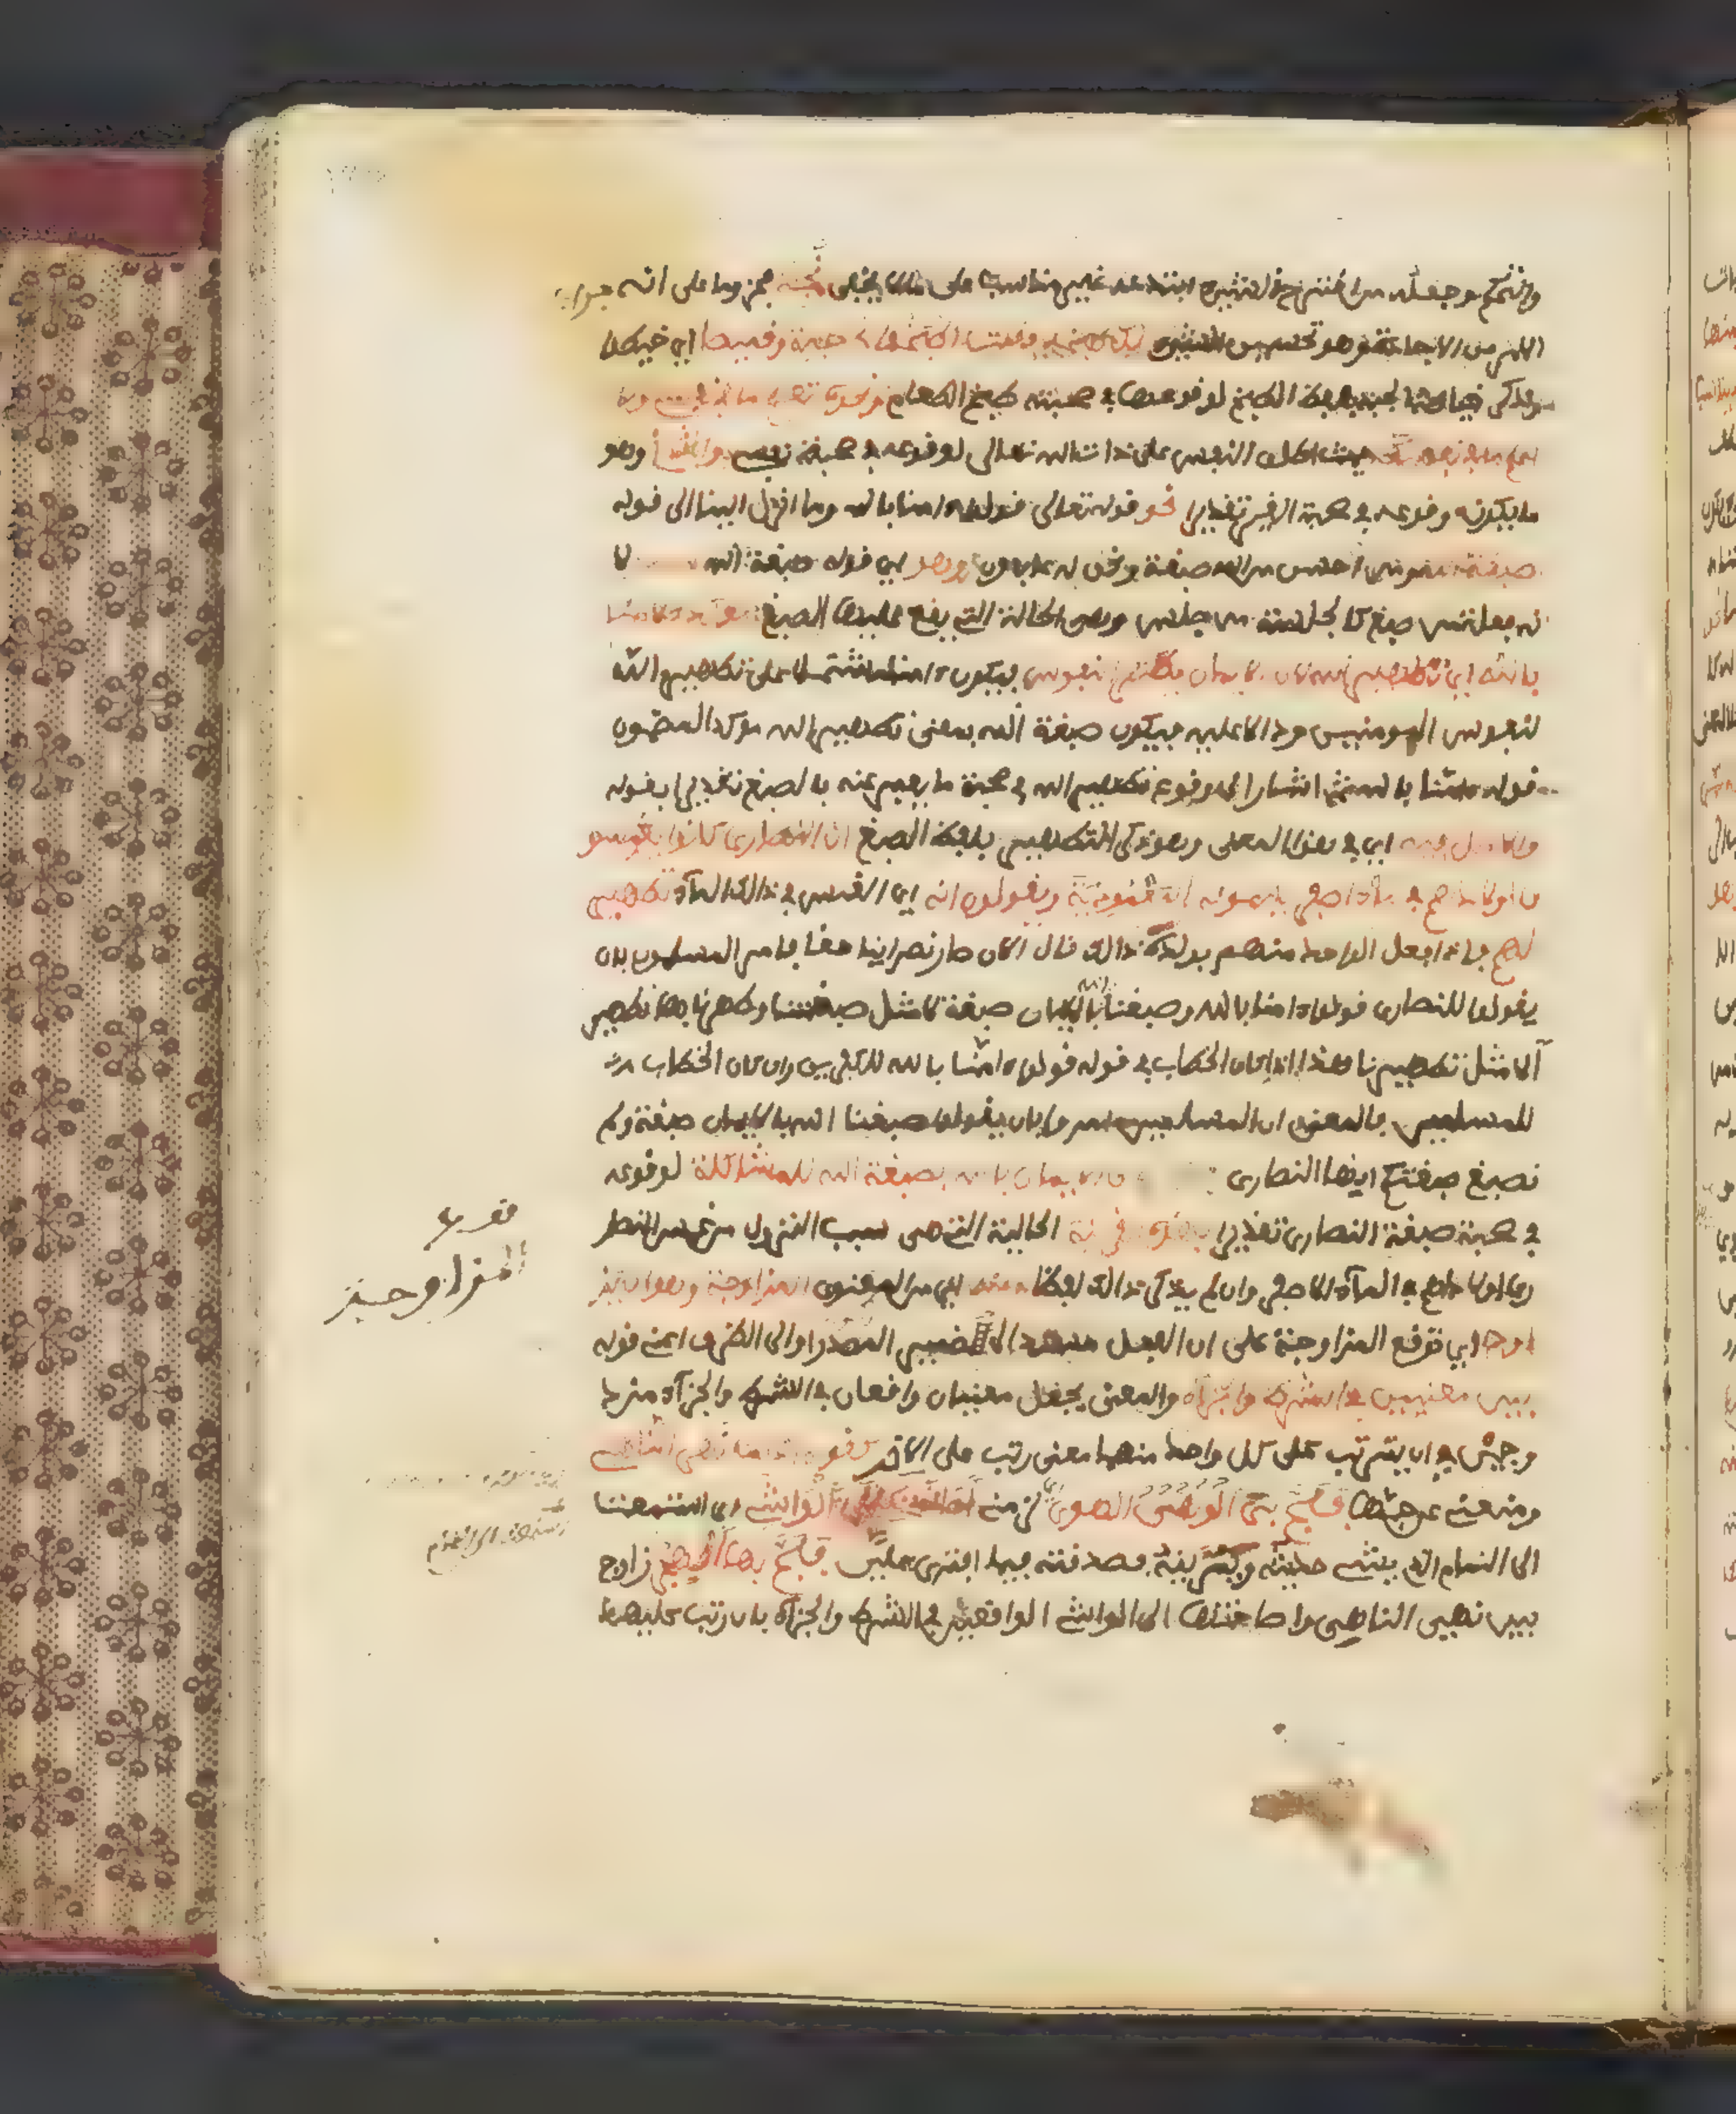 وجعله من اقترح الشيء ابتدعه غير مناسب على ما لا يخفى نجد مجزوما على انه جواب
الامر من الاجادة وهو تحسين الشيء لك طبخه قلت اطبخوا لي جبة وقميصا اي خيطوا
وذكر خياطة الجبة بلفظ الطبخ لوقوعها في صحبة طبخ الطعام ونحوه تعلم ما في نفسي ولا
اعلم ما في نفسك حيث اطلق النفس على ذات الله تعالى لوقوعه في صحبة نفسي والثاني وهو
ما يكون وقوعه في صحبة الغير تقديرا نحو قوله تعالى قولوا ءامنا بالله وما انزل الينا الى قوله
صبغة الله ومن احسن من الله صبغة ونحن له عابدون وهو اي قوله صبغة الله
فعلة من صبغ كالجلسة من جلس وهي الحالة التي يقع عليها الصبغ مؤكد لآمنا
بالله اي تطهير الله لان الايمان يطهر النفوس فيكون ءامنا مشتملا على تطهير الله
لنفوس المومنين ودالا عليه فيكون صبغة الله بمعنى تطهير الله موكدا لمضمون
قوله ءامنا بالله ثم اشار الى وقوع تطهير الله في صحبة ما يعبر عنه بالصبغ تقديرا بقوله
والاصل فيه اي في هذا المعنى وهو ذكر التطهير بلفظ الصبغ ان النصارى كانوا يغمسو
ن اولادهم في ماء اصفر يسمونه المعمودية ويقولون انه اي الغمس في ذالك الماء تطهير
لهم فاذا فعل الواحد منهم بولده ذالك قال الان صار نصرانيا حقا فامر المسلمون بان
يقولوا للنصارى قولوا ءامنا بالله وصبغنا الله بالايمان صبغة لا مثل صبغتنا وطهرنا به تطهير
آ لا مثل تطهيرنا هذا اذا كان الخطاب في قوله قولوا ءامنا بالله للكافرين وان كان الخطاب
للمسلمين فالمعنى ان المسلمين امروا بان يقولوا صبغنا الله بالايمان صبغة ولم
نصبغ صبغتكم ايها النصارى ن الايمان بالله بصبغة الله للمشاكلة لوقوعه
في صحبة صبغة النصارى تقديرا بهذه القرينة الحالية التي هي سبب النزول من غمس النصا
رى اولادهم في الماء الاصفر وان لم يذكر ذالك لفظا ومنه اي من المعنوي المزاوجة وهو ان يز
اوج اي توقع المزاوجة على ان الفعل مسند الى ضمير المصدر او الى الظرف اعني قوله
بين معنيين في الشرط والجزاء والمعنى يجعل معنيان واقعان في الشرط والجزاء مزدو
جين في ان يترتب على كل واحد منهما معنى رتب على الاخر كقوله اذا ما نهى الناهي
ومنعني عن حبها فلج بي الهوى لزمني اصاخت الى الواشي اي استمعت
الى النمام الذي يشي حديثه ويزينه فصدقته فيما افترى علي فلج بها الهجر زاوج
بين نهي الناهي واصاختها الى الواشي الواقعين في الشرط والجزاء بان رتب عليهما
المزاوجة